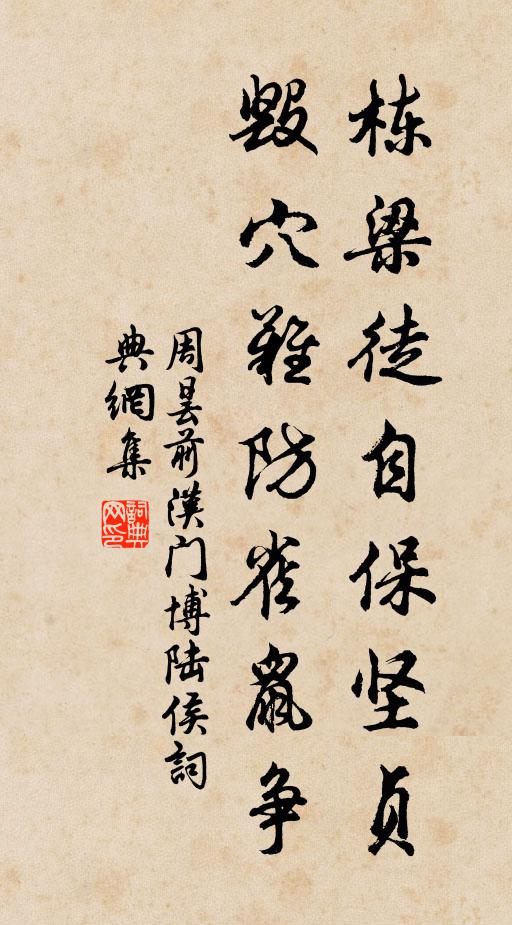 栋梁徒自保坚贞
毁穴难防雀鼠争
周昙前汉门博陆侯詞
典網集
詞典
网印